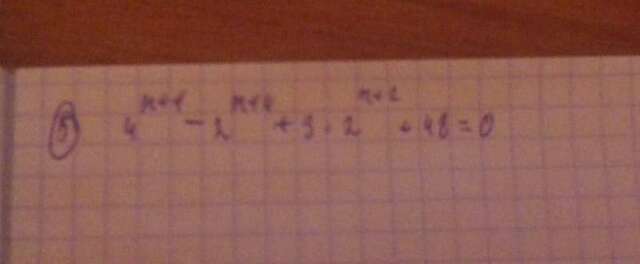 5) 4^{x+1} - 2^{x+4} + 3 · 2^{x+2} · 48 = 0